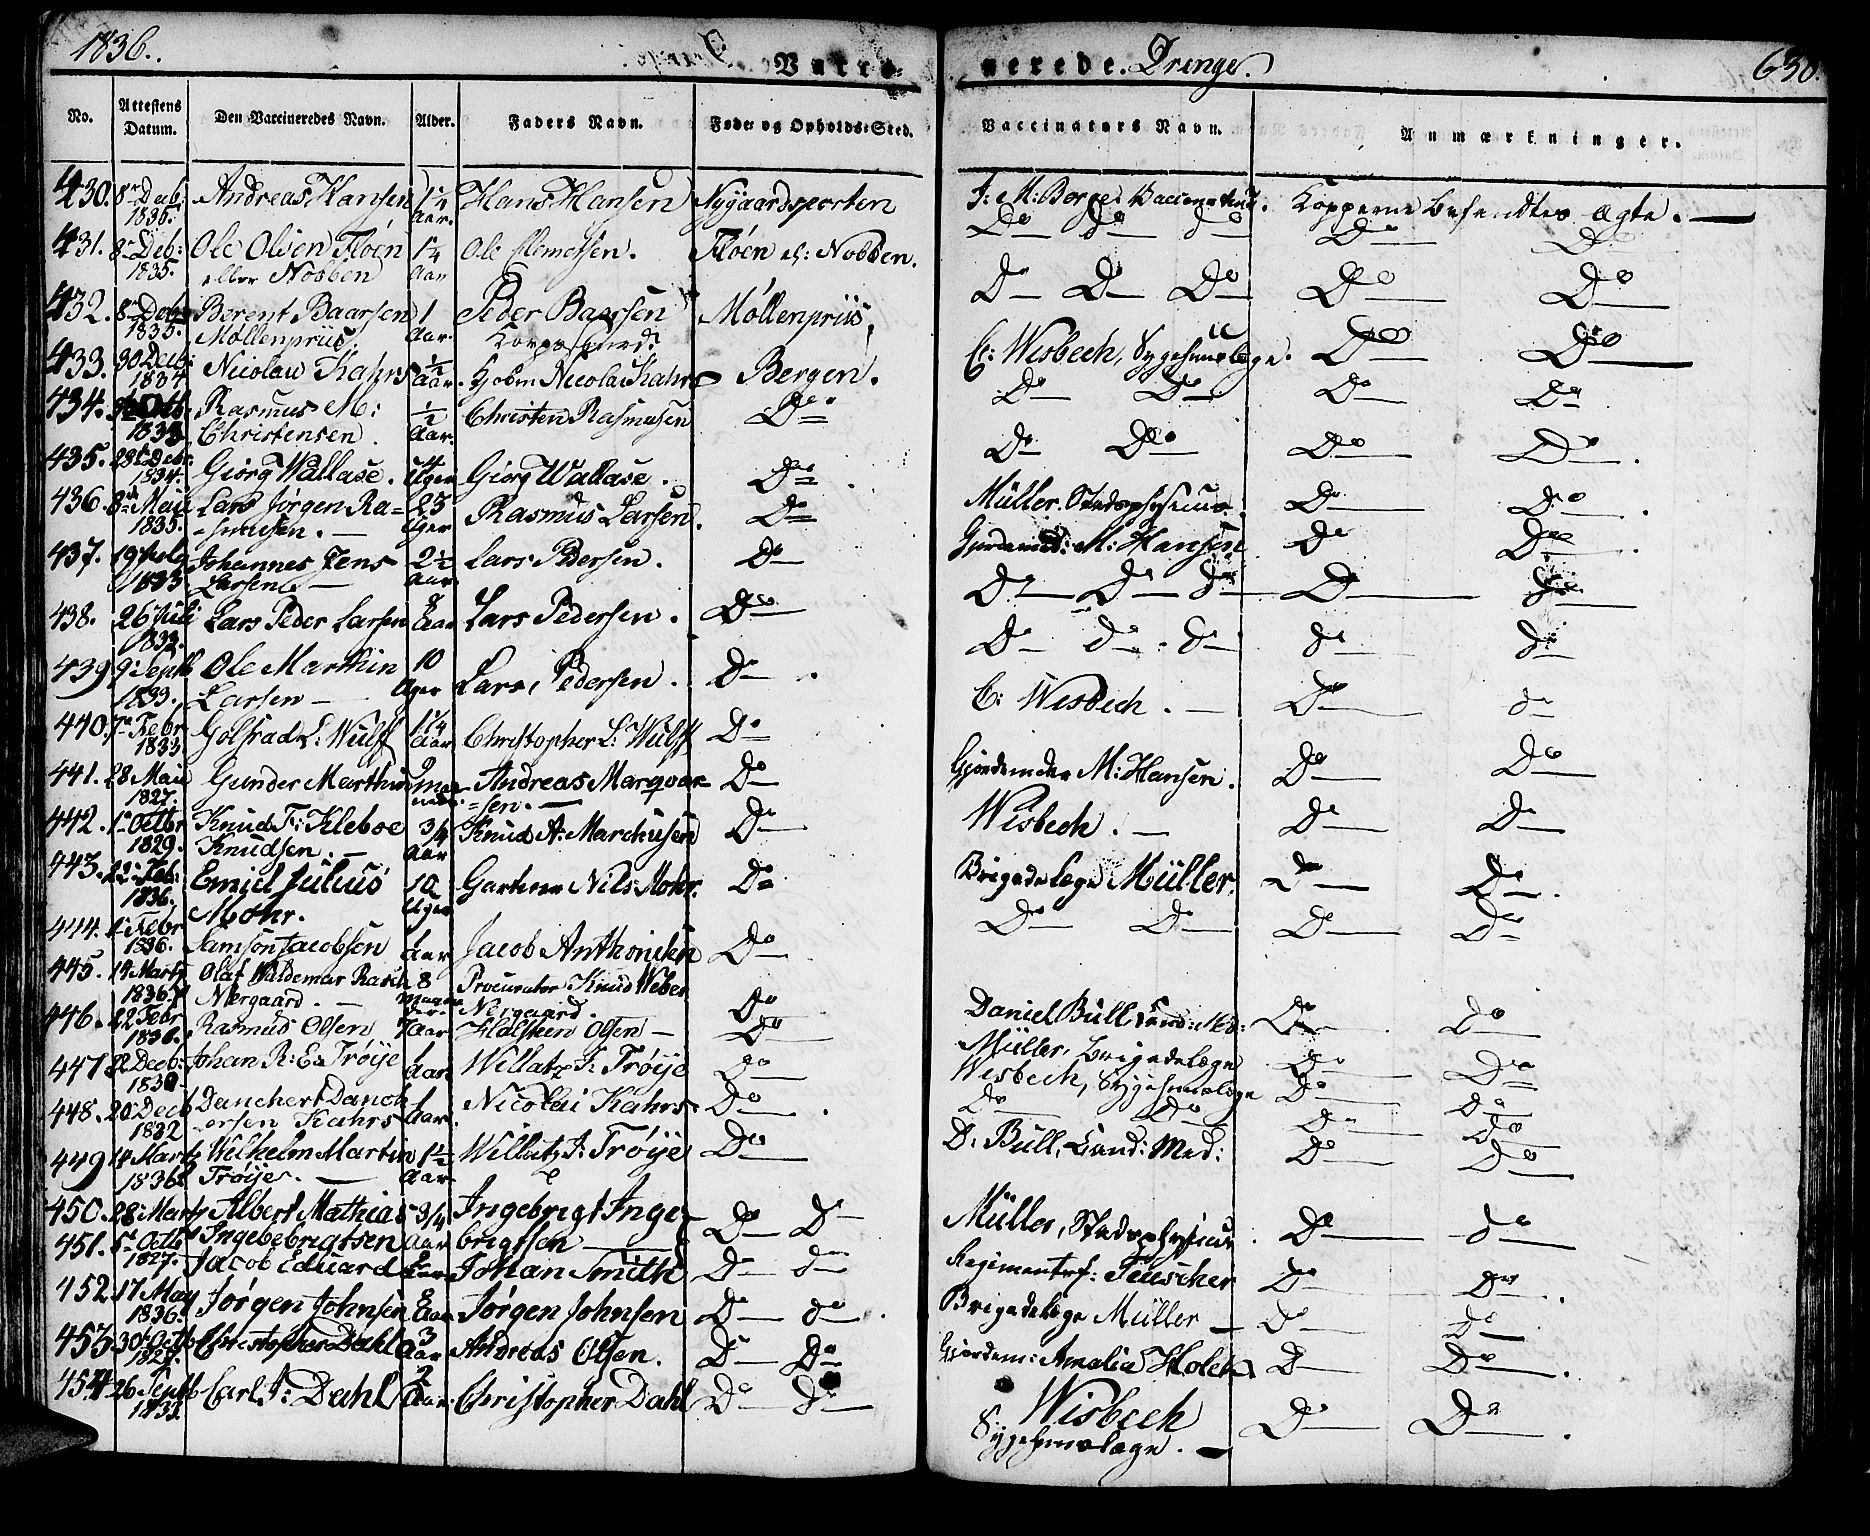 1836.
Vacci-
nerede. Drenge.
630.
No.
Attestens Datum.
Den Vaccineredes Navn.
Alder.
Faders Navn.
Føde- og Opholds-Sted.
Vaccinators Navn.
Anmærkninger.
430. 8de Decb: 1835. Andreas Hansen 1¼ Aar. Hans Hansen Nygaardsporten Vaccinateur. Kopperne befandtes ægte.
431. 8de Deb: 1835. Ole Olsen Fløen eller Nobben 1¼ Aar Ole Clemetsen. Fløen el: Nobben. Do Do Do Do Do
432. 8de Deb: 1835. Berent Baarsen Møllenpriis. 1 Aar. Peder Baarsen Møllenpriis, Do Do Do Do Do
433. 30 Decb: 1834 Nicolai Kahrs ½ Aar. Kjøbm Nicolai Kahrs Bergen. C: Wisbech, Sygehuuslæge. Do Do
434. 1833 Rasmus M: Christensen. ½ Aar. Christen Rasmusen Do Do Do Do Do
435. 28de Debr. 1834. Giørg Wallase. 14 Uger Giørg Wallase. Do Do Do Do Do
436. 8de Maii 1835. Lars Jørgen Ra=smusen. 23 Uger Rasmus Larsen. Do Müller. Stadsphysicus. Do Do
437. 19 1833 Johannes Jens Larsen. 2½ Aar Lars Pedersen. Do Gjordemod: M: Hansen Do Do
438. 26 Juli 1832. Lars Peder Larsen Aar Lars Pedersen. Do Do Do do Do Do
439 9: Septb 1833. Ole Marthin Larsen 10 Uger Lars Pedersen. Do Do do do do do
440. 7de Febr 1833 S: Wulf 1¼ Aar Christopher S. Wulff Do C: Wisbech. Do do
441. 28 Maii 1827. Gunder Marthin 9 maaneder Andreas Marqvar=sen. Do Gjordemoder M: Hansen. Do Do
442. 1de Octbr 1829. Knud F: Kleboe Knudsen. 3/4 Aar Knud A: Marchusen Do Wisbech. Do Do
443. 22de Feb: 1836. Emiel Julius Mohr. 10 Uger Gartner Nils Mohr. Do Brigadelæge Müller. Do Do
444. 1 Febr 1836. Samson Jacobsen Aar Jacob Anthonisen Do Do Do Do Do
445. 14 Marts 1836. Olaf Waldemar Rasch Nørgaard. 8 maaneder Procurator Knud Weber Nørgaard. Do Daniel Bull Cand: Med: Do Do
446. 22 Febr 1836. Rasmus Olsen Aar Halsten Olsen Do Müller, Brigadelæge Do Do
447 Decb: Johan R: E: Trøije 1 Aar Willatz J: Trøije Do Wisbech, Sygehuuslæge Do Do
448. 20 Decb 1832 Danchert Danckersen Kahrs 1 Aar. Nicolai Kahrs Do Do Do Do Do
449 14 Marts 1836 Wilhelm Martin Trøije. 1½ Aar Willatz J: Trøije Do D: Bull, Cand: Med: Do Do
450. 28 Marts Albert Mathias Ingebebrigtsen 3/4 Aar Ingebrigt Ingebrigtsen Do Do Müller, Stadsphysicus. Do do
451. 5de Octb 1827. Jacob Eduard Aar Johan Smith Do do Regimentsf: Teuscher Do Do
452 17 May 1836. Jørgen Johnsen Aar Jørgen Johnsen Do do. Brigadelæge Müller Do Do
453 30 Octb Christopher Dahl 3 Aar Andreas Olsen. Do Do Gjordem: Amalia Holck Do Do
454 26 Septb Carl J: Dahl 2 Aar Christopher Dahl Do Do Wisbech Sygehuuslæge. Do Do